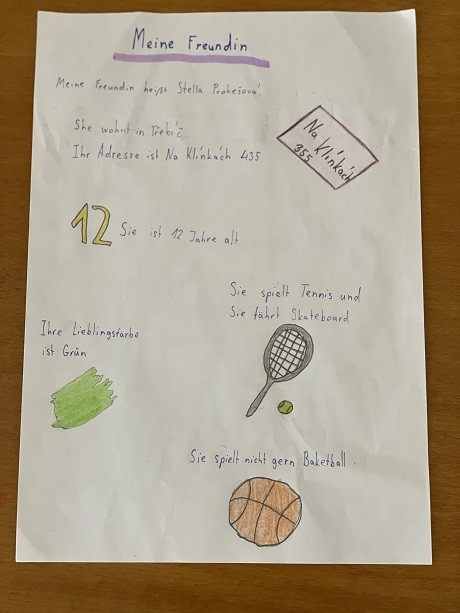 Meine Freundin
Meine Freundin heißt Stella Prokešová
She wohnt in Třebíč
Ihr Adresse ist Na Klínkách 435
Na Klínkách
355
12
Sie ist 12 Jahre alt
Sie spielt Tennis und
Sie fährt Skateboard
Ihre Lieblingsfarbe
ist Grün
Sie spielt nicht gern Baketball